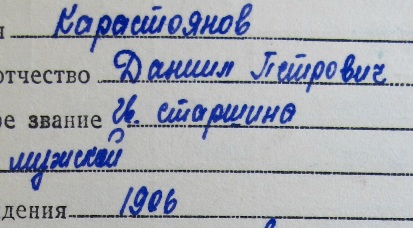 Карастоянов
отчество Даниил Петрович
ое звание Гв. старшина
мужской
дения 1906